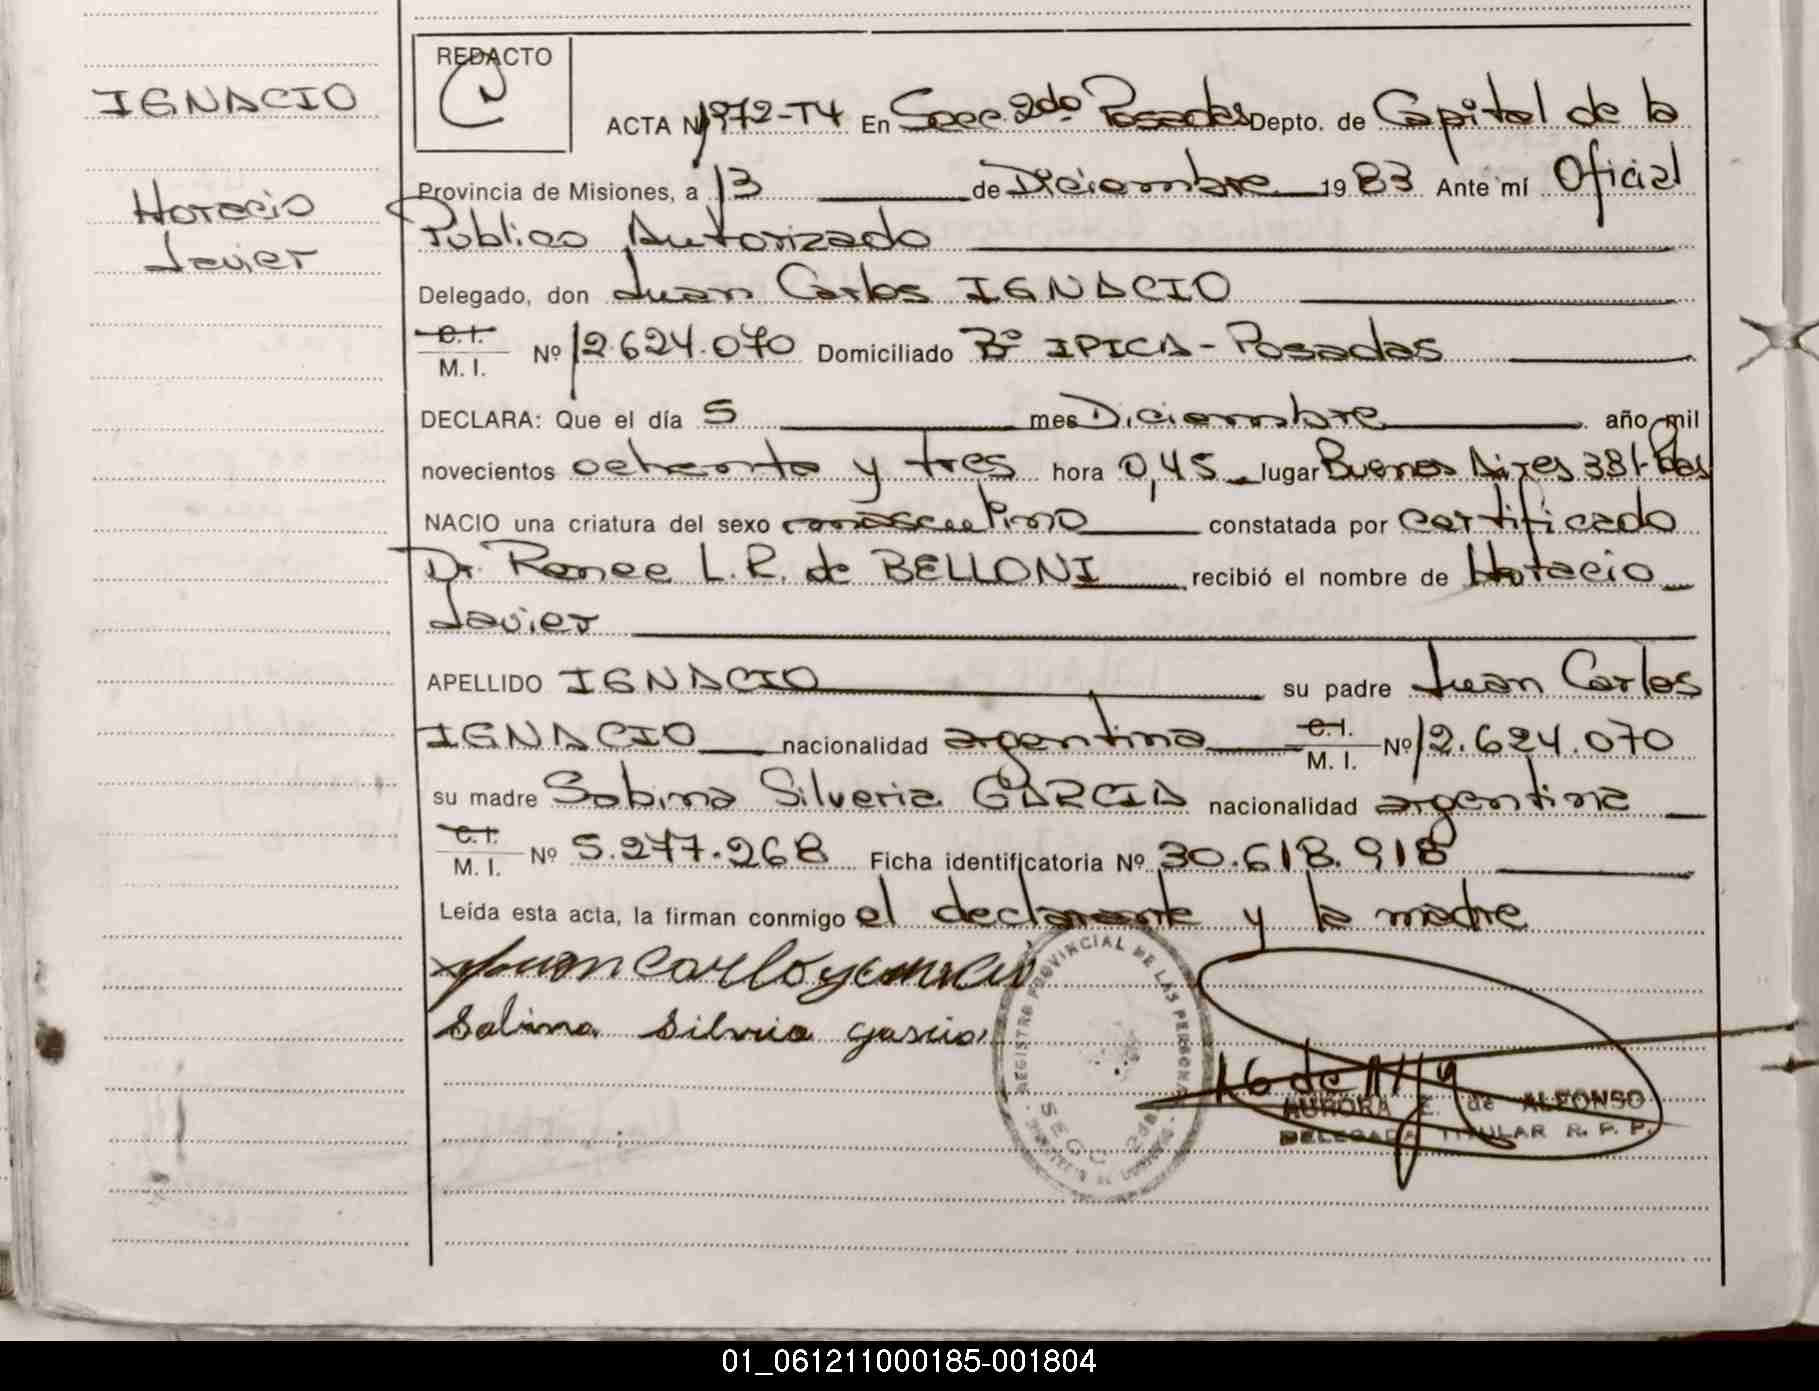 IGNACIO
Horacio
Javier
REDACTO
ACTA Nº 1972-T4 En Secc. 2do Posadas Depto. de Capital de la
Provincia de Misiones, a 13 de Diciembre 19 83 Ante mí Oficial
Publico Autorizado
Delegado, don Juan Carlos IGNACIO
C.I.
M. I. Nº 12.624.070 Domiciliado Bº IPICA - Posadas
DECLARA: Que el día 5 mes Diciembre año mil
novecientos ochenta y tres hora 0,45 lugar Buenos Aires 381-Pdas
NACIO una criatura del sexo masculino constatada por certificado
Dr. Renee L.R. de BELLONI recibió el nombre de Horacio
Javier
APELLIDO IGNACIO su padre Juan Carlos
IGNACIO nacionalidad argentina C.I. M. I. Nº 12.624.070
su madre Sabina Silveria GARCIA nacionalidad argentina
C.I.
M. I. Nº 5.277.268 Ficha identificatoria Nº 30.618.918
Leída esta acta, la firman conmigo el declarante y la madre
Juan Carlos
Sabina Silvria garcia
REGISTRO PROVINCIAL DE LAS PERSONAS
AURORA E. de ALFONSO
DELEGADA TITULAR R. P. P.
01_061211000185-001804